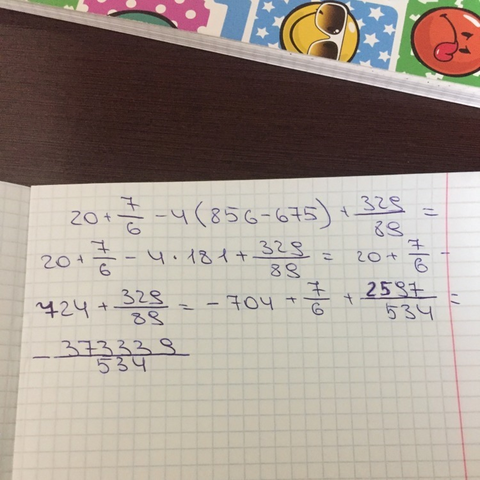 20 + 7/6 - 4 (856 - 675) + 329/89 =
20 + 7/6 - 4 · 181 + 329/89 = 20 + 7/6 -
724 + 329/89 = - 704 + 7/6 + 2597/534 =
- 373339/534